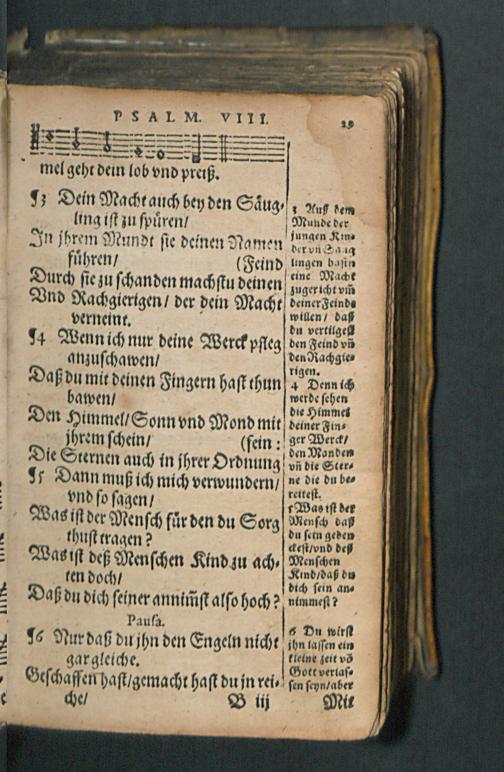 PSALM. VIII.
29
mel geht dein lob vnd preiß.
¶3 Dein Macht auch bey den Säug-
ling ist zu spüren/
In jhrem Mundt sie deinen Namen
führen/ (Feind
Durch sie zu schanden machstu deinen
Vnd Rachgierigen/ der dein Macht
verneint.
¶4 Wenn ich nur deine Werck pfleg
anzuschawen/
Daß du mit deinen Fingern hast thun
bawen/
Den Himmel/ Sonn vnd Mond mit
jhrem schein/ (fein:
Die Sternen auch in jhrer Ordnung
¶5 Dann muß ich mich verwundern/
vnd so sagen/
Was ist der Mensch für den du Sorg
thust tragen?
Was ist deß Menschen Kind zu ach-
ten doch/
Daß du dich seiner annim̃st also hoch?
Pausa.
¶6 Nur daß du jhn den Engeln nicht
gar gleiche.
Geschaffen hast/ gemacht hast du jn rei-
che/
B iij
3 Auß dem
Munde der
jungen Kin-
der vñ Saug
lingen hastu
eine Macht
zugericht vm̃
deiner Feinde
willen/ daß
du vertilgest
den Feind vñ
den Rachgie-
rigen.
4 Denn ich
werde sehen
die Himmel
deiner Fin-
ger Werck/
den Monden
vñ die Ster-
ne die du be-
reitest.
5 Was ist der
Mensch daß
du sein geden
ckest/ vnd deß
Menschen
Kind/ daß du
dich sein an-
nimmest?
6 Du wirst
jhn lassen ein
kleine zeit võ
Gott verlas-
sen seyn/ aber
Mit